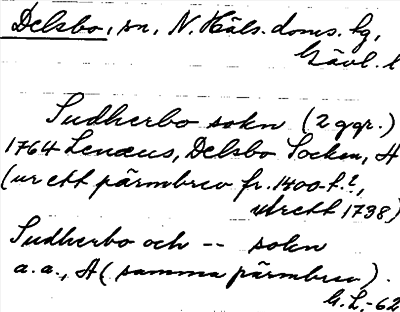 Delsbo, sn, N. Häls. doms. hg,
Gävl. l
Sudherbo sokn (2 ggr.)
1764 Lenæus, Delsbo Socken, A
(ur ett pärmbrev fr. 1400-t.?,
utrett 1738)
Sudherbo och -- sokn
a.a., A (samma pärmbrev).
G.L. -62